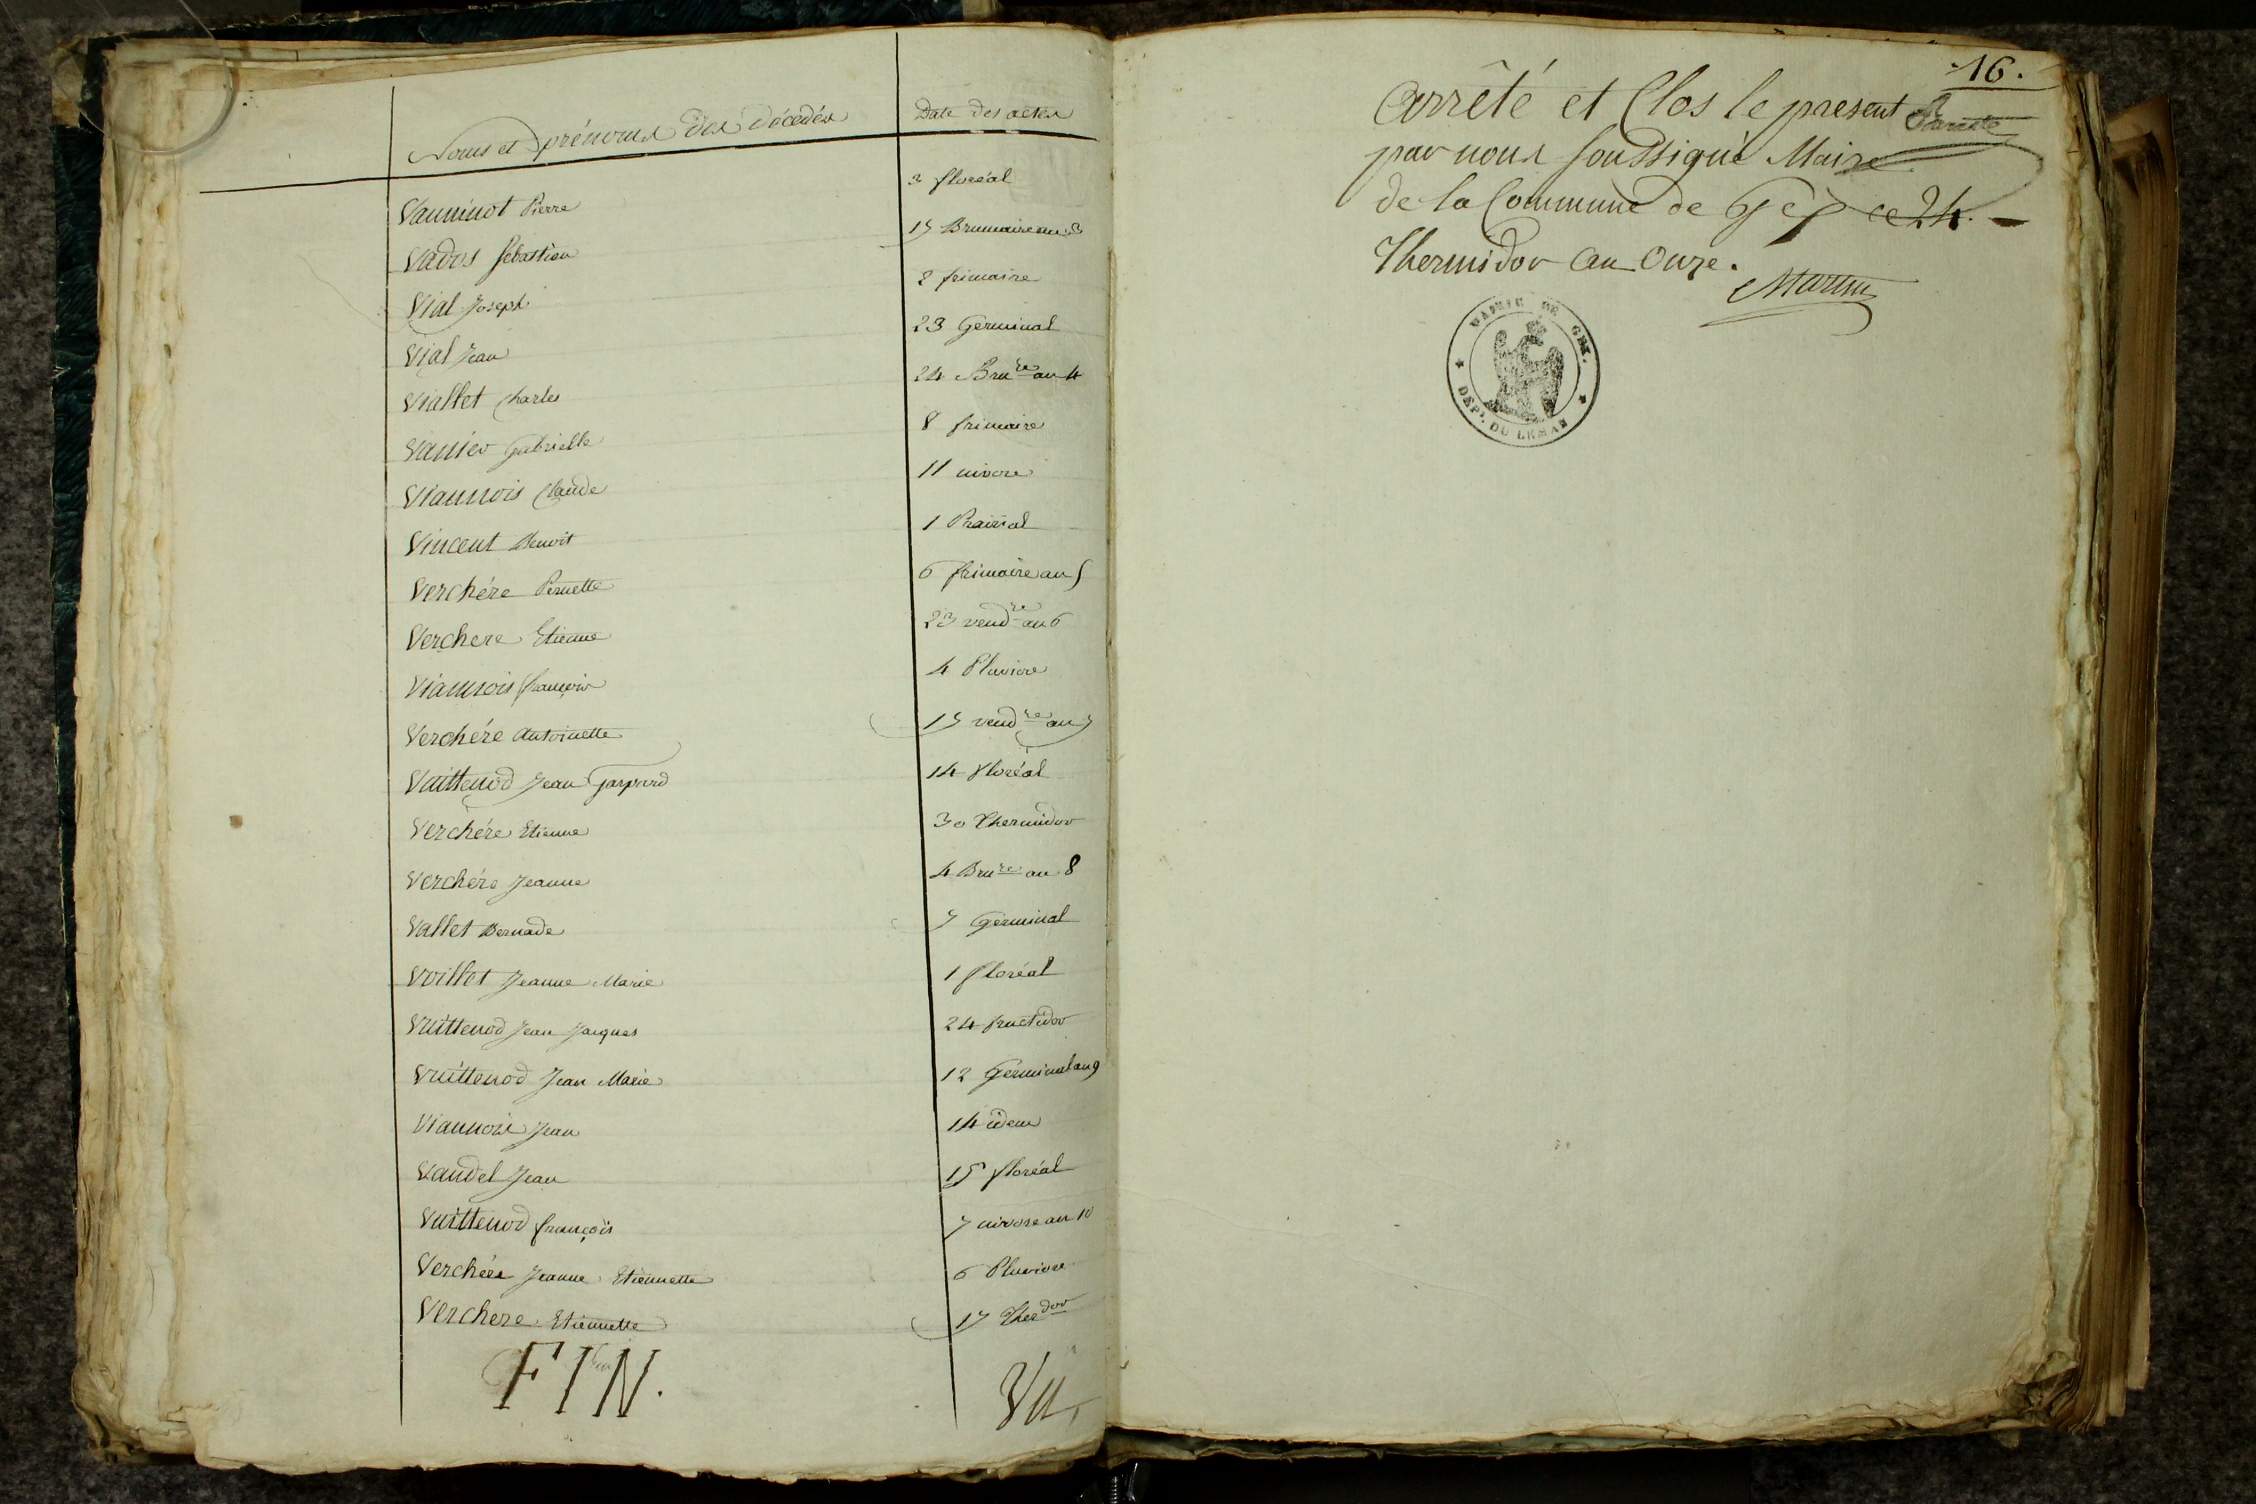 Noms et prénoms des décédés Date des actes
Vauninot Pierre 3 floréal
Vados Sébastien 15 Brumaire an 3
Vial Joseph 2 frimaire
Vial Jean 23 Germinal
Viallet Charles 24 Bru.re an 4
Vanier Gabrielle 8 frimaire
Viannois Claude 11 nivose
Vincent Benoit 1 Prairial
Verchére Pernette 6 frimaire an 5
Verchere Etienne 23 vend.re an 6
Viannois françois 4 Pluviose
Verchére Antoinette 15 vend.re an 7
Vuittenod Jean Gaspard 14 floréal
Verchére Etienne 30 Thermidor
Verchére Jeanne 4 Bru.re an 8
Vallet Bernade 7 Germinal
Voillet Jeanne Marie 1 floréal
Vuittenod Jean Jacques 24 fructidor
Vuittenod Jean Marie 12 Germinal an 9
Viannois Jean 14 idem
Vaudel Jean 15 floréal
Vuittenod françois 7 nivose an 10
Verchére Jeanne Etiennette 6 Pluviose
Verchere Etiennette 17 Ther.dor
FIN.
Vu
16.
Arrêté et Clos le present
par nous soussigné Maire
de la Commune de Gex ce 24.
Thermidor an Onze.
Martin
MAIRIE DE GEX.
DEPt. DU LEMAN